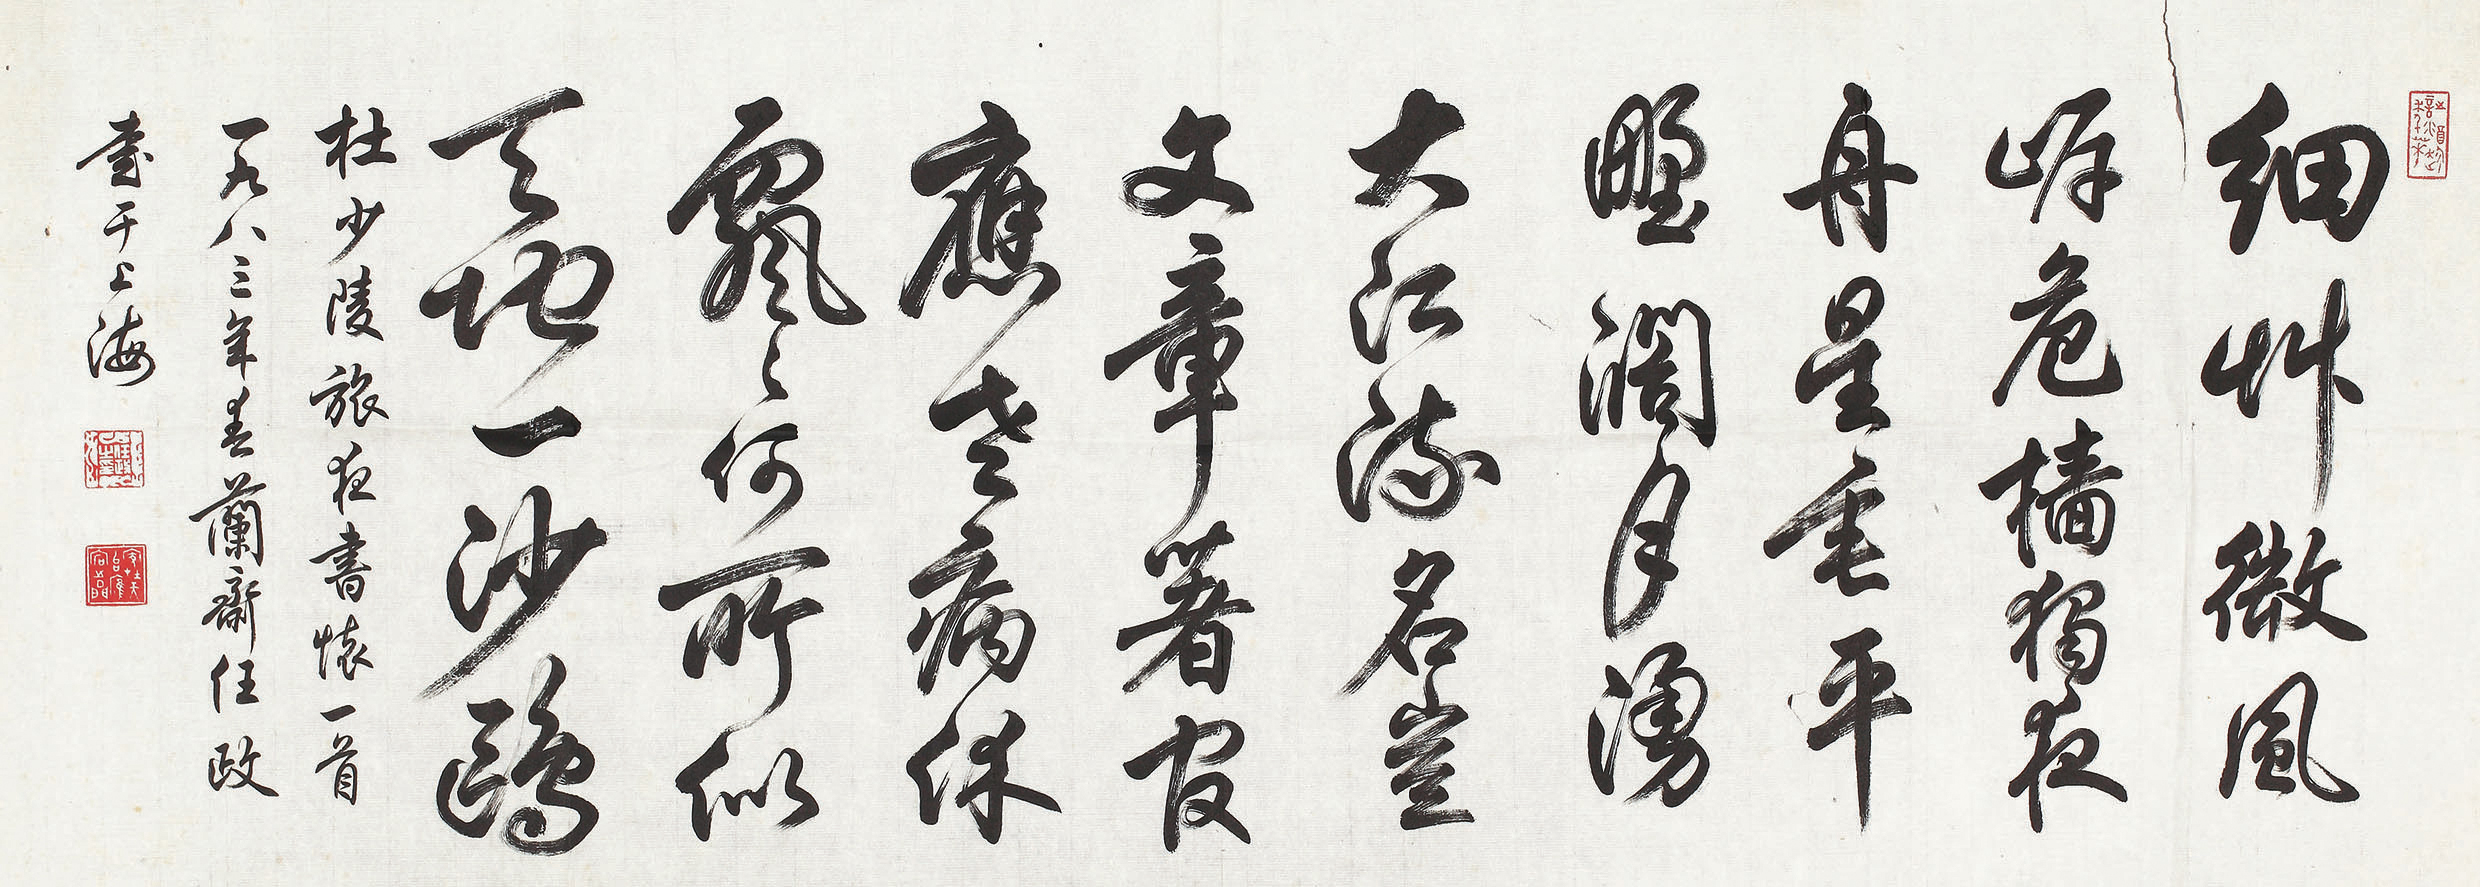 細艸微風
岸危檣獨夜
舟星垂平
野闊月湧
大江流名豈
文章著官
應老病休
飄〻何所似
天地一沙鷗
杜少陵旅夜書懷一首
一九八三年春蘭齋任政
書于上海